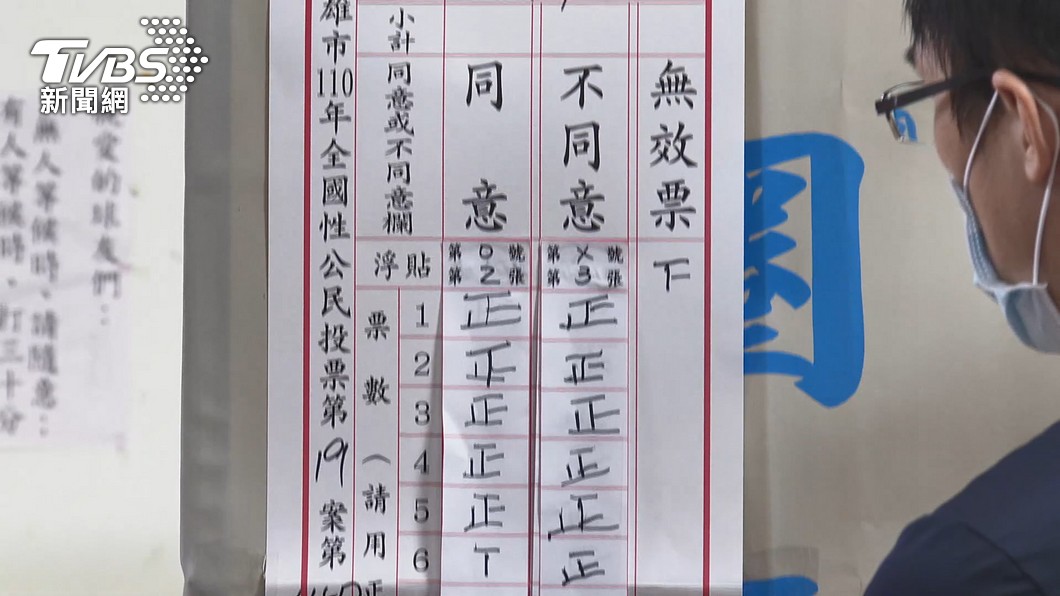 TVBS
新聞網
愛的球友們：
無人等候時、請隨意：
有人等候時、打三十分
雄市110年全國性公民投票第19案第
小計
同意或不同意欄
同意
不同意
無效票
浮貼
第0號
第2張
第X號
第3張
下
票數（請用正
1 正 正
2 正 正
3 正 正
4 正 正
5 正 正
6 丅 正